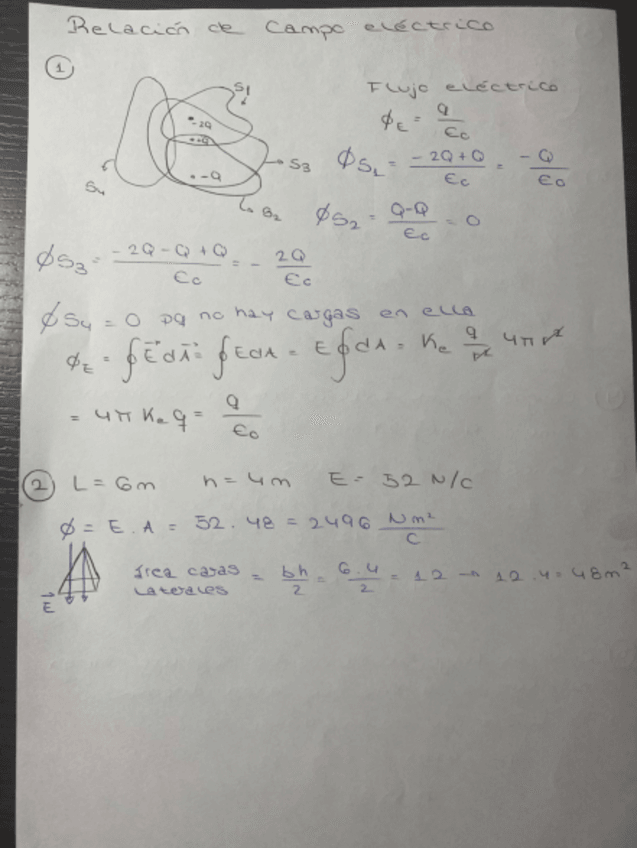 Relación de Campo eléctrico
1
S1
Flujo eléctrico
-2Q
ϕE = q/ε0
+Q
S3
ϕS1 = (-2Q+Q)/ε0 = -Q/ε0
-Q
S4
S2
ϕS2 = (Q-Q)/ε0 = 0
ϕS3 = (-2Q-Q+Q)/ε0 = - 2Q/ε0
ϕS4 = 0 pq no hay cargas en ella
ϕE = ∮E⃗ dA⃗ = ∮EdA = E∮dA = Ke q/r² 4πr²
= 4π Ke q = q/ε0
2 L = 6m h = 4m E = 52 N/C
ϕ = E. A = 52. 48 = 2496 Nm²/C
E⃗
área caras laterales = bh/2 = 6.4/2 = 12 → 12.4 = 48m²